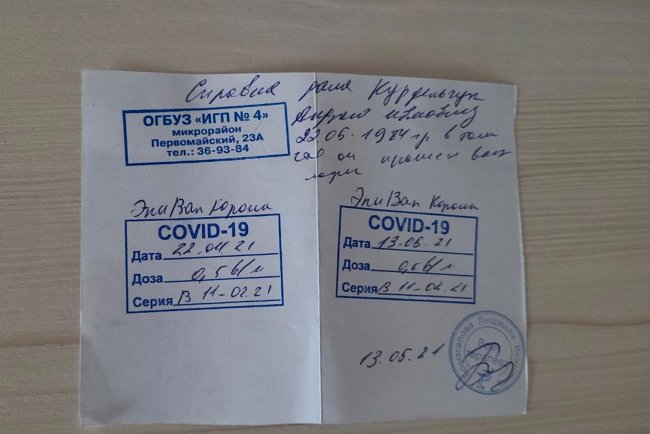 Справка дана Курдельчук
ОГБУЗ «ИГП № 4»
микрорайон
Первомайский, 23А
тел.: 36-93-84
Андрей
22.06.1984 гр в том
что он прошел вак
ЭпиВак Корона
COVID-19
Дата 22.04.21
Доза 0,5 в/м
Серия В 11-02.21
ЭпиВак Корона
COVID-19
Дата 13.05.21
Доза 0,5 в/м
Серия В 11-02.21
13.05.21
Людмила